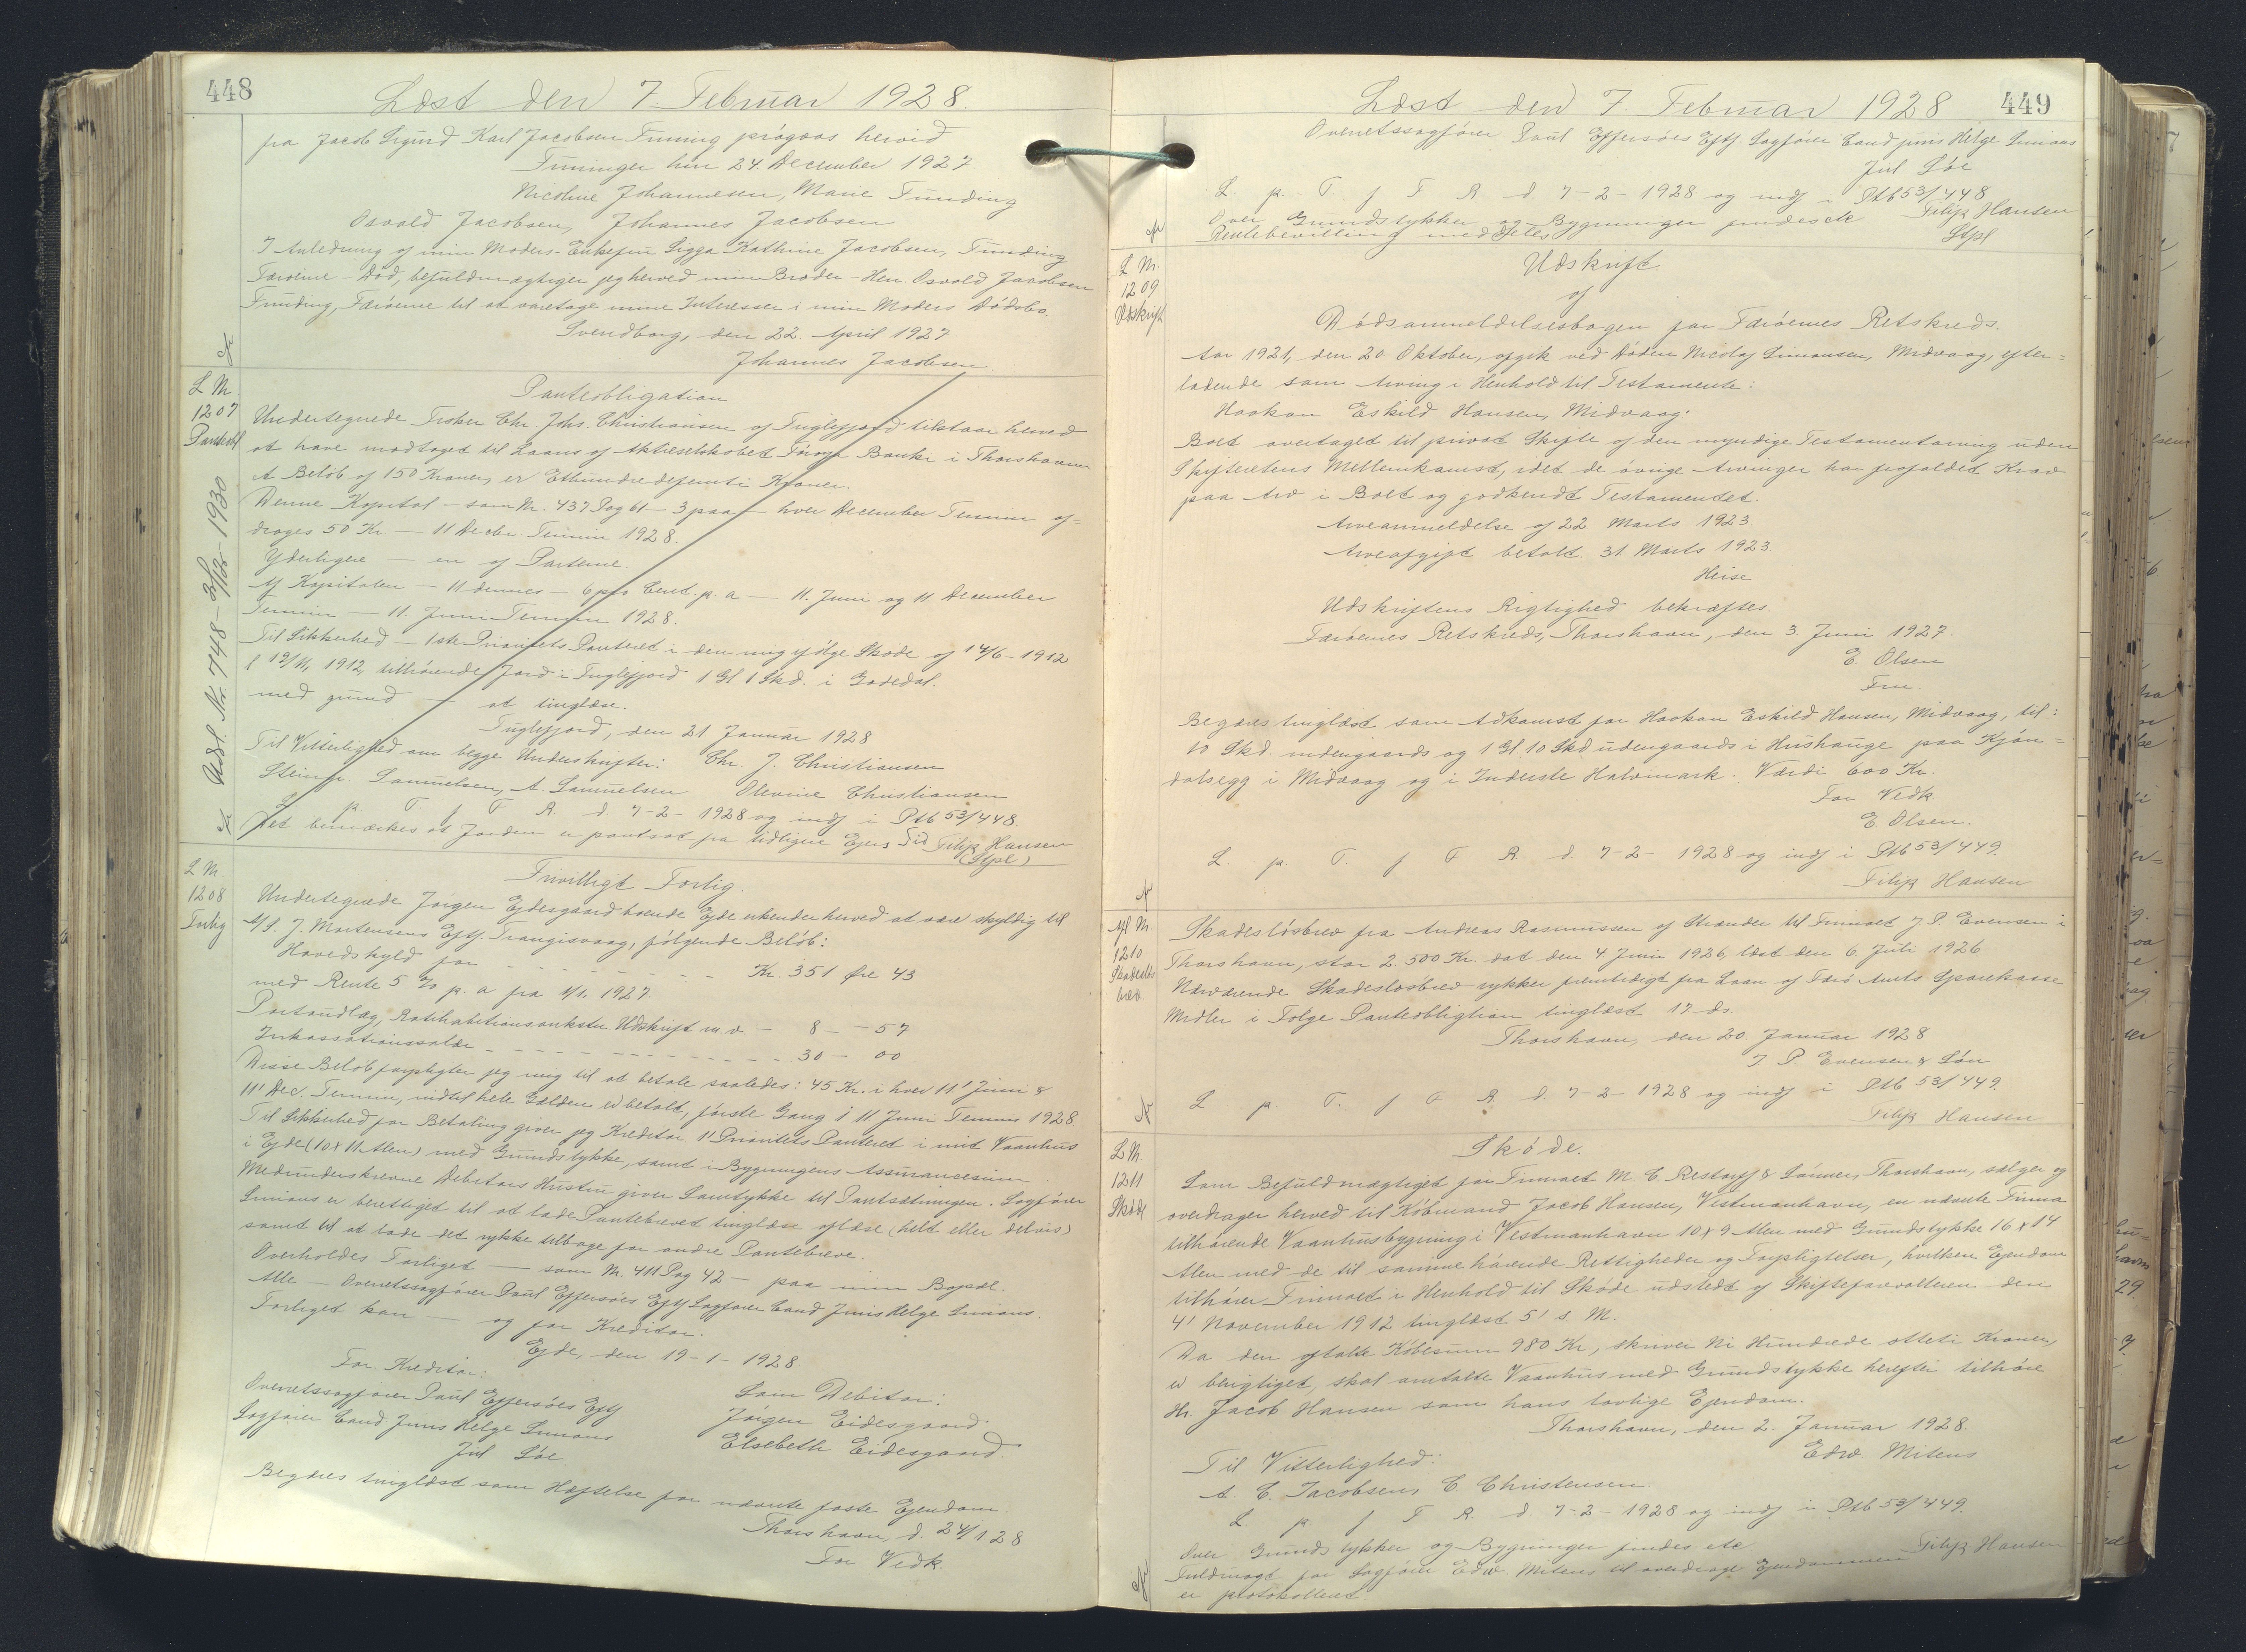 448
Læst den 7 Februar 1928.
fra Jacob Sigurd Karl Jacobsen Funning prägaas herved
Funninger hin 24. December 1927
Nicoline Johannesen, Marie Funding
Osvald Jacobsen, Johannes Jacobsen
I Anledning af min Moders - Enkefru Sigga Kathrine Jacobsen, Funding
Færøerne - Død, befuldmægtiger jeg herved min Broder - Herr Osvald Jacobsen
Funding, Færøerne til at varetage mine Interesser i min Moders Dødsbo.
Svendborg, den 22. April 1927
Johannes Jacobsen.
L Nr.
1207
Panteobl
Panteobligation
Undertegnede Fisker Chr. Johs. Christiansen af Fuglefjord tilstaar herved
at have modtaget til Laans af Aktieselskabet Føroya Banki i Thorshavn
et Beløb af 150 Kroner, er Ethundredefemti Kroner.
Denne Kapital - som Nr. 437 Pag 61 - 3 paa - hver December Termin af-
drages 50 Kr. - 11 Decbr. Termin 1928.
Yderligere - en af Parterne.
Af Kapitalen - 11 dennes - 6 pro Cent. p. a - 11. Juni og 11 December
Termin - 11. Juni Termin 1928.
Til Sikkerhed - 1ste Prioritets Panteret i den mig ifølge Skøde af 14/6-1912
l 19/11, 1912, tilhørende Jord i Fuglefjord 1 Gl 1 Skd. i Gardedal.
med grund - at tinglæse.
Fuglefjord, den 21 Januar 1928
Til Vitterlighed om begge Underskrifter: Chr. J. Christiansen
Steinfr. Samuelsen, A. Samuelsen Olevine Christiansen
L p T. f F R. d. 7-2-1928 og indf i Ptb 53/448.
Det bemærkes at Jorden er pantsat fra tidligere Ejers Tid Filip Hansen
(Stpl)
Udsl. Nr. 7748 - 30/12 - 1930
L Nr
1208
Forlig
Frivilligt Forlig.
Undertegnede Jørgen Ejdesgaard boende Ejde erkender herved at være skyldig til
A/S. J. Mortensens Eftf. Trangisvaag, følgende Beløb:
Hovedskyld for - - - - - - - Kr. 351 Øre 43
med Rente 5 % p. a fra 1/1. 1927.
Portoudlæg, Ratihabitionsankstn Udskrift m.v. - 8 - - 57
Inkassationssalær - - - - - - - - - 30 - 00
Disse Beløb forpligter jeg mig til at betale saaledes: 45 Kr. i hver 11' Juni &
11' Dec. Termin, indtil hele Gælden er betalt, første Gang i 11 Juni Termin 1928
Til Sikkerhed for Betaling giver jeg Kreditor 1' Prioritets Panteret i mit Vaanhus
i Ejde (10 x 11 Alen) med Grundstykke, samt i Bygningens Assurancesum
Medunderskrevne Debitors Hustru giver Samtykke til Pantsætningen. Sagfører
Simians er berettiget til at lade Pantebrevet tinglæse aflæse (helt eller delvis)
samt til at lade det rykke tilbage for andre Pantebreve.
Overholdes Forliget - som Nr. 411 Pag 42 - paa min Bopæl.
Alle - Overretssagfører Poul Effersöes Eftf Sagfører Cand Juris Helge Simians.
Forliget kan - og for Kreditor.
Ejde, den 19-1-1928.
For Kreditor: Som Debitor:
Overretssagfører Poul Effersöes Eftf Jørgen Eidesgaard.
Sagfører Cand Juris Helge Simians Elsebeth Eidesgaard.
Jul Søe
Begæres tinglæst som Hæftelse for nævnte faste Ejendom.
Thorshavn d. 24/1 28
For Vedk.
449
Læst den 7. Februar 1928
Overretssagfører Poul Effersöes Eftf. Sagfører Cand juris Helge Simians
Jul Søe
L. p. T. f F R d. 7-2-1928 og indf i Ptb 53/448
Over Grundstykker og Bygninger findes etc Filip Hansen
Rentebevilling meddeles Stpl
L Nr.
1209
Udskrift
Udskrift
af
Dødsanmeldelsesbogen for Færøernes Retskreds.
Aar 1921, den 20. Oktober, afgik ved Døden Nicolaj Simonsen, Midvaag, efter-
ladende som Arving i Henhold til Testamente:
Haakon Eskild Hansen, Midvaag.
Boet overtaget til privat Skifte af den myndige Testamentarving uden
Skifterettens Mellemkomst, idet de øvrige Arvinger har frafaldet Krav
paa Arv i Boet og godkendt Testamentet.
Arveanmeldelse af 22. Marts 1923.
Arveafgift betalt. 31. Marts 1923.
Heise
Udskriftens Rigtighed bekræftes.
Færøernes Retskreds, Thorshavn, den 3. Juni 1927.
E. Olsen
Fm.
Begæres tinglæst som Adkomst for Haakon Eskild Hansen, Midvaag, til:
10 Skd. indengaards og 1 Gl 10 Skd udengaards i Hushauge paa Kjøn-
dalsegg i Midvaag og i Inderste Halvmark. Værdi 600 Kr.
For Vedk.
E. Olsen.
L. p. T. f F R d. 7-2-1928 og indf i Ptb 53/449.
Filip Hansen
Afl Nr
1210
Skadesløs
brev
Skadesløsbrev fra Andreas Rasmussen af Strænder til Firmaet J P. Evensen i
Thorshavn, stor 2.500 Kr. dat den 4 Juni 1926, læst den 6. Juli 1926
Nærværende Skadesløsbrev rykker fremtidigt fra Laan af Færø Amts Sparekasse
Midler i Følge Panteobligtion tinglæst 17 ds.
Thorshavn, den 20 Januar 1928
J P. Evensen & Søn
L p. T. f F R. d. 7-2-1928 og indf i Ptb 53/449.
Filip Hansen
L Nr.
1211
Skøde
Skøde.
Som Befuldmægtiget for Firmaet M. C. Restorff & Sønner, Thorshavn, sælger og
overdrager herved til Købmand Jacob Hansen, Vestmanhavn, en nævnte Firma
tilhørende Vaanhusbygning i Vestmanhavn 10 x 9 Alen med Grundstykke 16 x 14
Alen med de til samme hørende Rettigheder og Forpligtelser, hvilken Ejendom
tilhører Firmaet i Henhold til Skøde udstedt af Skifteforvalteren den
4' November 1912 tinglæst 5' s. M.
Da den aftalte Købesum 980 Kr, skriver Ni Hundrede otteti Kroner,
er berigtiget, skal omtalte Vaanhus med Grundstykke herefter tilhøre
Hr. Jacob Hansen som hans lovlige Ejendom.
Thorshavn, den 2. Januar 1928.
Edw. Mitens
Til Vitterlighed:
A. C. Jacobsen, C Christensen.
L. p. f F R. d. 7-2-1928 og indf i Ptb 53/449.
Over Grundstykker og Bygninger findes etc Filip Hansen
Fuldmagt for Sagfører Edw. Mitens til overdrage Ejendommen
er protokolleret.